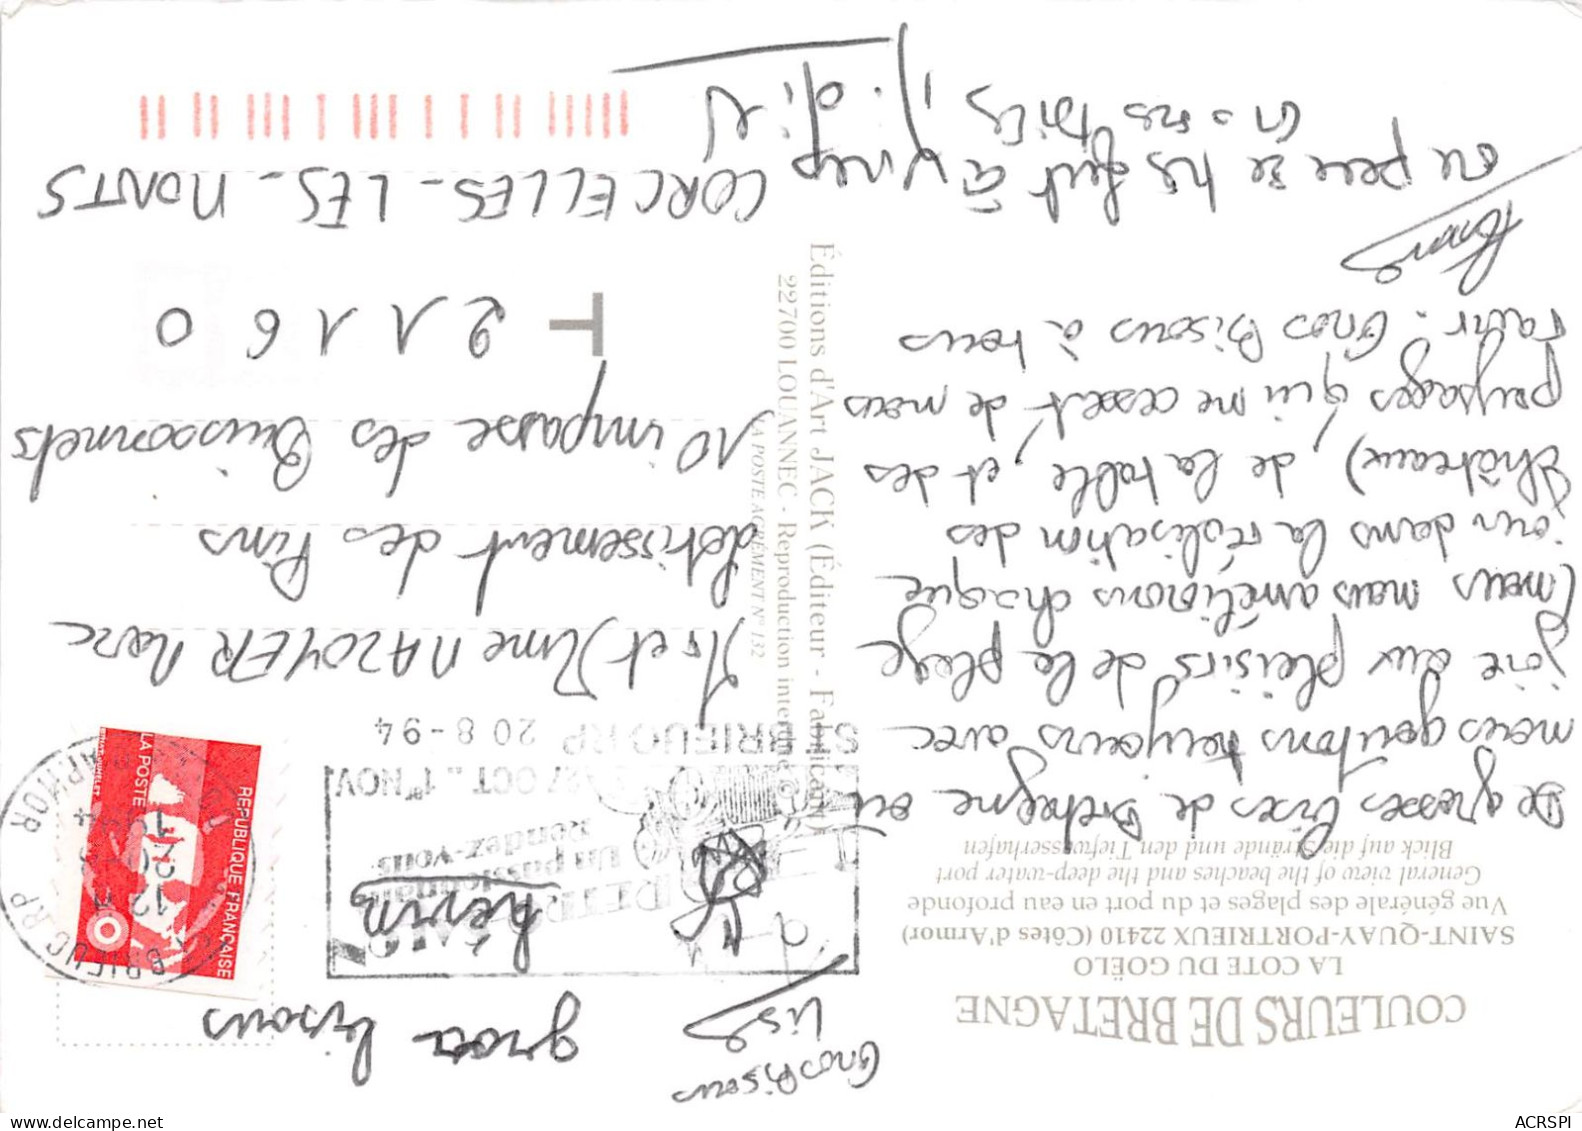 COULEURS DE BRETAGNE
LA COTE DU GOËLO
SAINT-QUAY-PORTRIEUX 22410 (Côtes d'Armor)
Vue générale des plages et du port en eau profonde
General view of the beaches and the deep-water port
Blick auf die Strände und den Tiefwasserhafen
De grosses bises de Bretagne où
nous goûtons toujours avec
joie aux plaisirs de la plage
(nous nous améliorons chaque
jour dans la réalisation des
châteaux), de la table, et des
paysages qui ne cessent de nous
ravir. Gros Bisous à tous
Gros Bisous
Lise
gros bisous
Kévin
RETRO
La passion au
Rendez-vous
27 OCT. 1er NOV.
ST BRIEUC RP 20 8-94
ST BRIEUC RP
12 H
20-8
1994
COTES D'ARMOR
REPUBLIQUE FRANÇAISE
LA POSTE
Mr et Mme NAZOYER Marc
lotissement des Pins
10 impasse des Buissonnets
T 21160
CORCELLES-LES-MONTS
Éditions d'Art JACK (Éditeur - Fabricant)
22700 LOUANNEC - Reproduction interdite ©
LA POSTE AGRÉMENT N° 132
ACRSPI